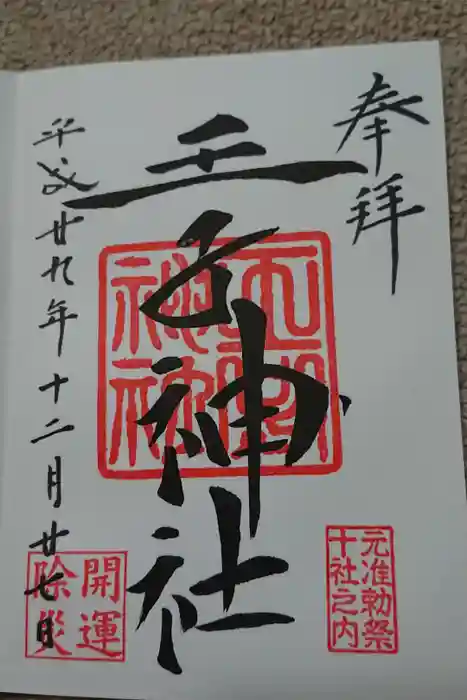 奉拝
元准勅祭
十社之内
王子神社
平成廿九年十二月廿七日
開運
除災